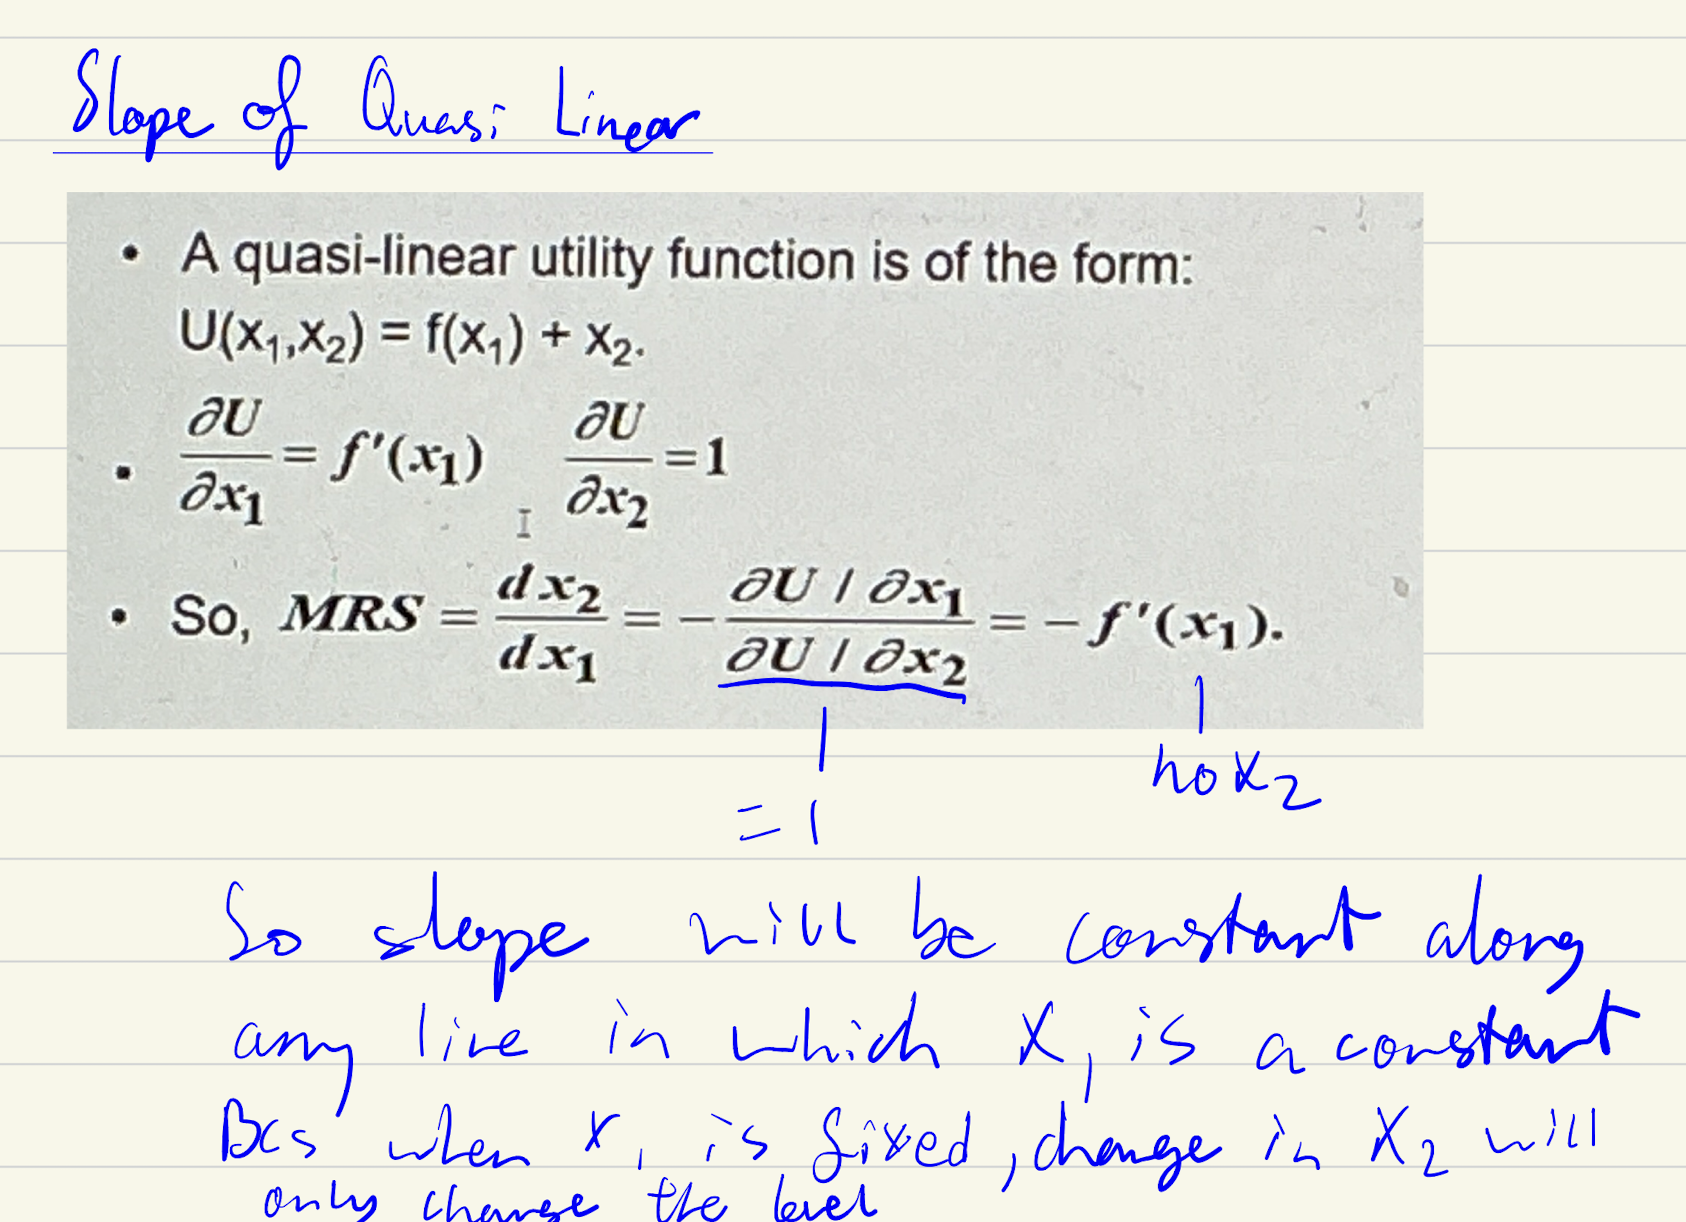 Slope of Quasi Linear
• A quasi-linear utility function is of the form:
U(x₁,x₂) = f(x₁) + x₂.
• ∂U/∂x₁ = f'(x₁) ∂U/∂x₂ = 1
• So, MRS = dx₂/dx₁ = − (∂U / ∂x₁)/(∂U / ∂x₂) = − f'(x₁).
no x₂
= 1
So slope will be constant along
any line in which x₁ is a constant
Bcs when x₁ is fixed, change in x₂ will
only change the level